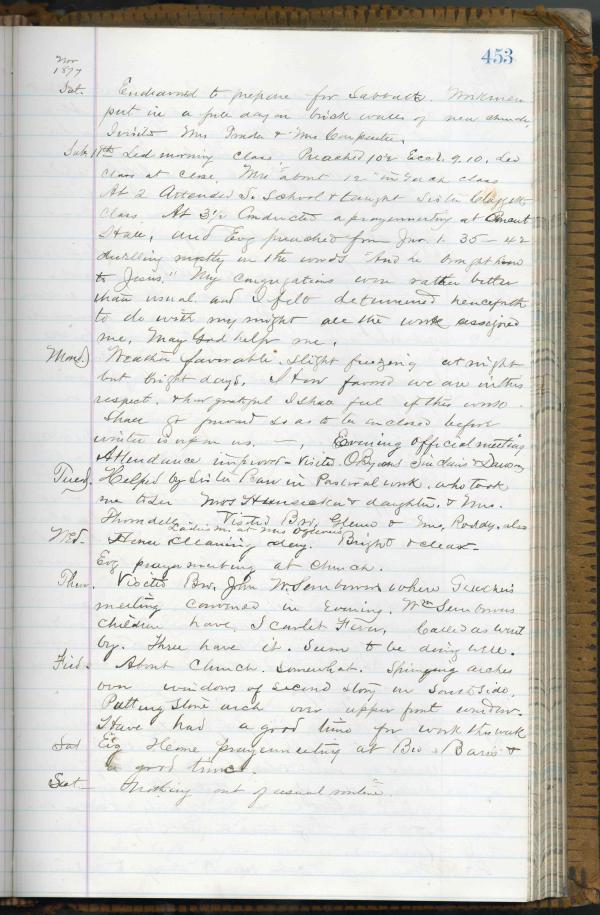 453
Nov
1877
Sat. Endeavored to prepare for Sabbath. Workmen
put in a full day on brick walls of new church,
Visited Mrs & Mrs Carpenter.
Sab. 18th Led morning class. Preached 10½ Eccl. 9.10. Led
class at close. about 12 in each class
At 2 Attended S. School & taught Sister
class. At 3½ Conducted a prayermeeting at
Hall, and Evg preached from Jno. 1. 35-42
dwelling mostly on the words "And he brought him
to Jesus." My congregations were rather better
than usual and I felt determined henceforth
to do with my might all the work assigned
me, May God help me.
Mond. Weather favorable. Slight freezing at night
but bright days. How favored we are in this
respect. & how grateful I shall feel if this work
shall go forward so as to be inclosed before
winter is upon us. —, Evening official meeting
Attendance improved - Visited O.Bryans Sinclairs &
Tuesd. Helped by Sister Barr in Pastoral work. who took
me to see Mrs & daughter, & Mrs.
Visited Bro. Glenn & Mrs. Roddy, also
Wed. House cleaning day. Bright & clear.
Evg prayermeeting at Church.
Thur. Visited Bro. John W. Semborns where
meeting convened in evening. Wm Semborns
children have Scarlet Fever, Called as went
by. Three have it. Seem to be doing well.
Frid. About Church somewhat. Springing arches
over windows of second story on South Side.
Putting Stone arch over upper front window.
Have had a good time for work this week
Sat Evg Home prayermeeting at Bro Barrs &
a good time.
Sat - Nothing out of usual routine